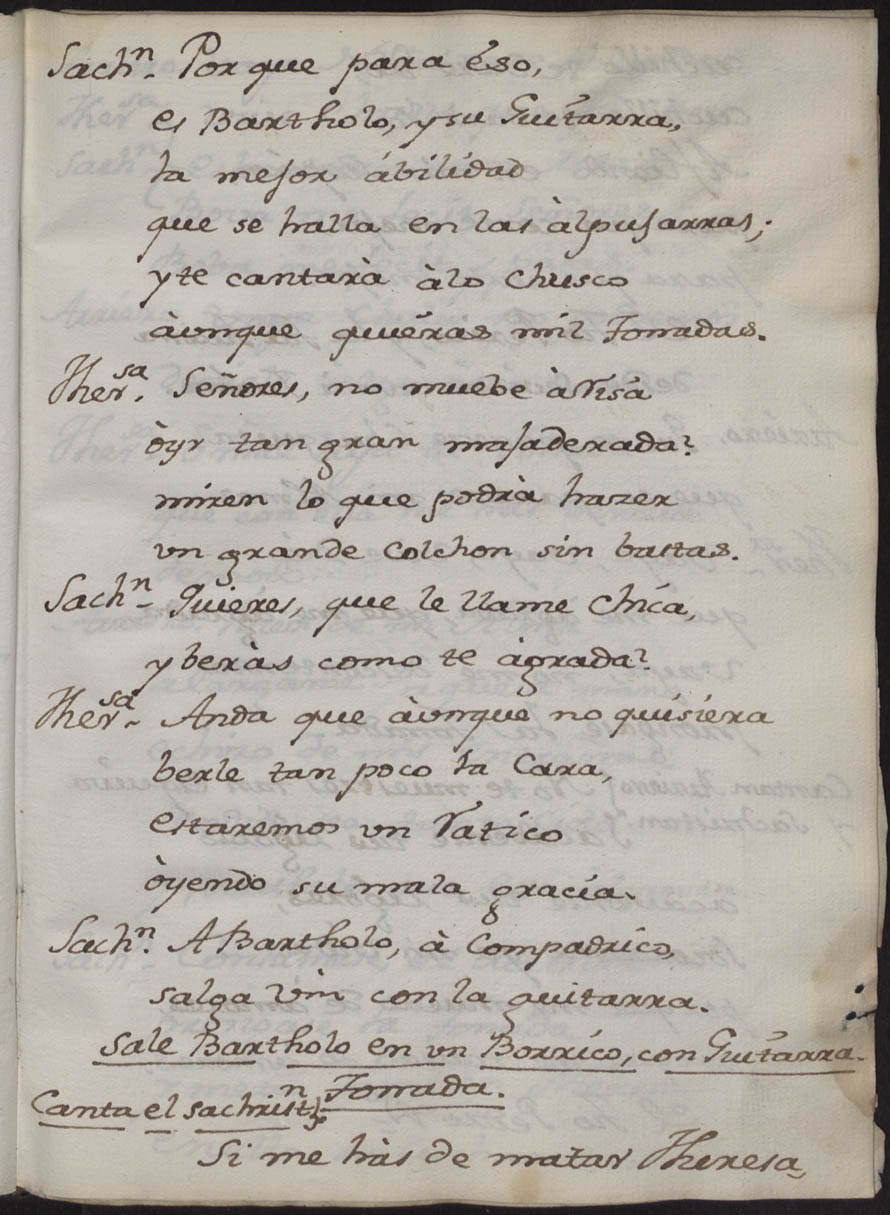 Sachn. Porque para éso,
es Bartholo, y su Guitarra,
la mejor ábilidad
que se halla en las àlpujarras;
y te cantarà àlo chusco
àunque quiéras mil Tonadas.
Thersa. Señores, no muebe à Risa
òyr tan gran majaderada?
miren lo que podrà hazer
vn grande Colchon sin bastas.
Sachn. Quieres, que le llame Chica,
y beràs como te àgrada?
Thersa. Anda que àunque no quisiera
berle tan poco la Cara,
estaremos vn Ratico
òyendo su mala gracia.
Sachn. A Bartholo, à Compadrico,
salga Vm con la guitarra.
Sale Bartholo en vn Borrico, con Guitarra.
Canta el sachristn Tonada.
Si me hàs de matar Theresa,